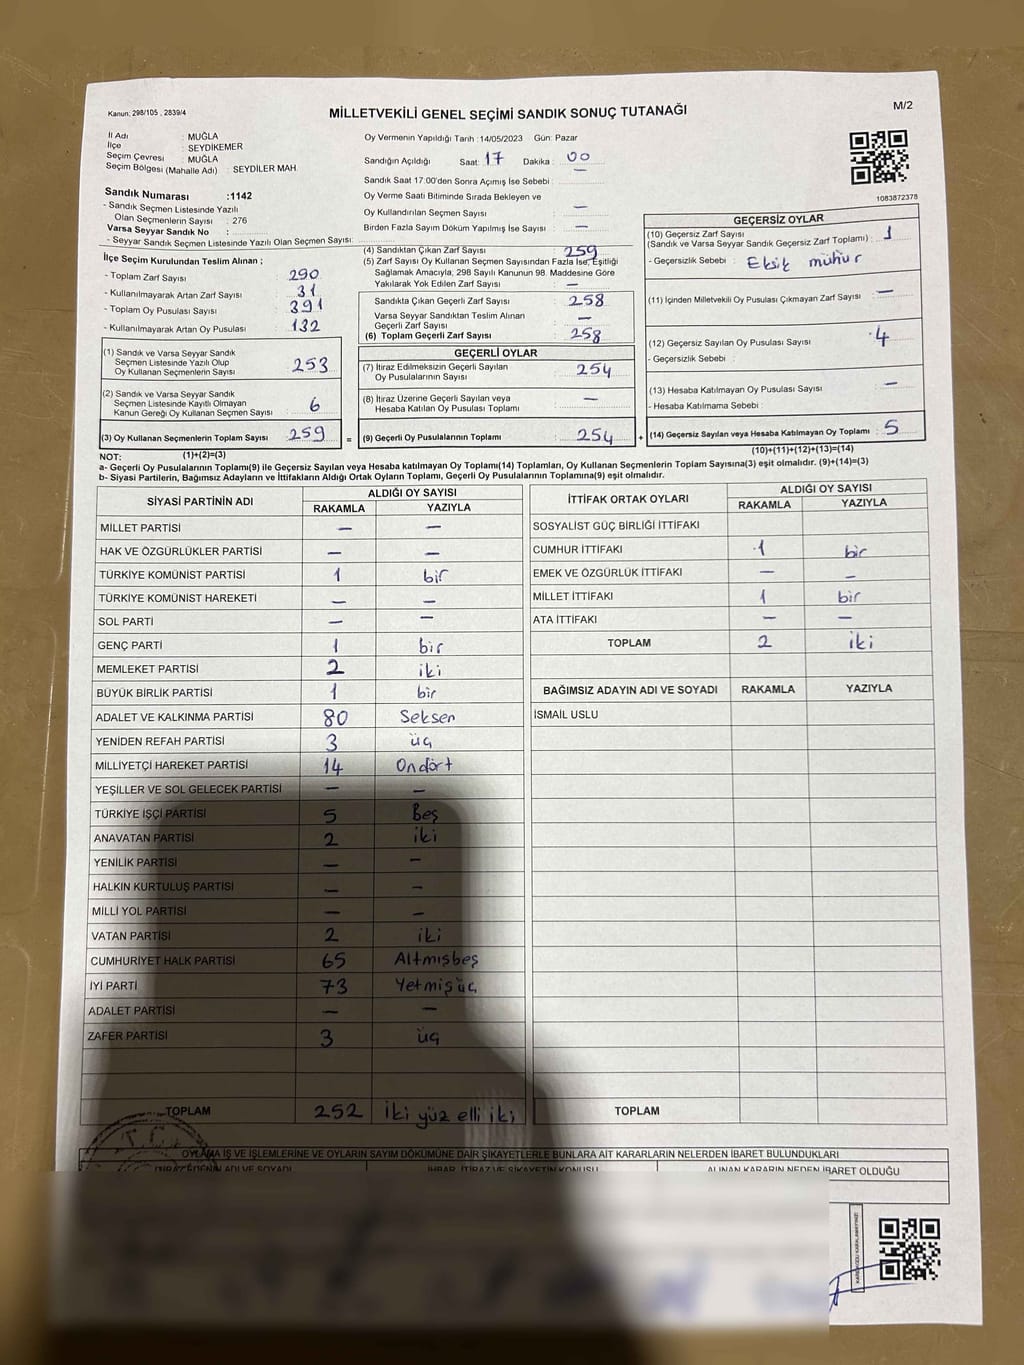 Kanun: 298/105 , 2839/4
MİLLETVEKİLİ GENEL SEÇİMİ SANDIK SONUÇ TUTANAĞI
M/2
İl Adı : MUĞLA
İlçe : SEYDİKEMER
Seçim Çevresi : MUĞLA
Seçim Bölgesi (Mahalle Adı) : SEYDİLER MAH
Oy Vermenin Yapıldığı Tarih :14/05/2023 Gün: Pazar
Sandığın Açıldığı Saat: 17 Dakika : 00
Sandık Saat 17:00'den Sonra Açımış İse Sebebi : —
Oy Verme Saati Bitiminde Sırada Bekleyen ve
Oy Kullandırılan Seçmen Sayısı : —
Birden Fazla Sayım Döküm Yapılmış İse Sayısı : —
1083872378
Sandık Numarası :1142
- Sandık Seçmen Listesinde Yazılı
Olan Seçmenlerin Sayısı : 276
Varsa Seyyar Sandık No :
- Seyyar Sandık Seçmen Listesinde Yazılı Olan Seçmen Sayısı:
İlçe Seçim Kurulundan Teslim Alınan ;
- Toplam Zarf Sayısı : 290
- Kullanılmayarak Artan Zarf Sayısı : 31
- Toplam Oy Pusulası Sayısı : 391
- Kullanılmayarak Artan Oy Pusulası : 132
(1) Sandık ve Varsa Seyyar Sandık
Seçmen Listesinde Yazılı Olup
Oy Kullanan Seçmenlerin Sayısı : 253
(2) Sandık ve Varsa Seyyar Sandık
Seçmen Listesinde Kayıtlı Olmayan
Kanun Gereği Oy Kullanan Seçmen Sayısı : 6
(3) Oy Kullanan Seçmenlerin Toplam Sayısı : 259 =
(4) Sandıktan Çıkan Zarf Sayısı : 259
(5) Zarf Sayısı Oy Kullanan Seçmen Sayısından Fazla İse, Eşitliği
Sağlamak Amacıyla, 298 Sayılı Kanunun 98. Maddesine Göre
Yakılarak Yok Edilen Zarf Sayısı : —
Sandıkta Çıkan Geçerli Zarf Sayısı : 258
Varsa Seyyar Sandıktan Teslim Alınan
Geçerli Zarf Sayısı : —
(6) Toplam Geçerli Zarf Sayısı : 258
GEÇERLİ OYLAR
(7) İtiraz Edilmeksizin Geçerli Sayılan
Oy Pusulalarının Sayısı : 254
(8) İtiraz Üzerine Geçerli Sayılan veya
Hesaba Katılan Oy Pusulası Toplamı : —
(9) Geçerli Oy Pusulalarının Toplamı : 254 +
GEÇERSİZ OYLAR
(10) Geçersiz Zarf Sayısı
(Sandık ve Varsa Seyyar Sandık Geçersiz Zarf Toplamı) : 1
- Geçersizlik Sebebi : Eksik mühür
(11) İçinden Milletvekili Oy Pusulası Çıkmayan Zarf Sayısı : —
(12) Geçersiz Sayılan Oy Pusulası Sayısı : 4
- Geçersizlik Sebebi :
(13) Hesaba Katılmayan Oy Pusulası Sayısı : —
- Hesaba Katılmama Sebebi :
(14) Geçersiz Sayılan veya Hesaba Katılmayan Oy Toplamı : 5
NOT: (1)+(2)=(3) (10)+(11)+(12)+(13)=(14)
a- Geçerli Oy Pusulalarının Toplamı(9) ile Geçersiz Sayılan veya Hesaba katılmayan Oy Toplamı(14) Toplamları, Oy Kullanan Seçmenlerin Toplam Sayısına(3) eşit olmalıdır. (9)+(14)=(3)
b- Siyasi Partilerin, Bağımsız Adayların ve İttifakların Aldığı Ortak Oyların Toplamı, Geçerli Oy Pusulalarının Toplamına(9) eşit olmalıdır.
SİYASİ PARTİNİN ADI ALDIĞI OY SAYISI
RAKAMLA YAZIYLA
MİLLET PARTİSİ — —
HAK VE ÖZGÜRLÜKLER PARTİSİ — —
TÜRKİYE KOMÜNİST PARTİSİ 1 bir
TÜRKİYE KOMÜNİST HAREKETİ — —
SOL PARTİ — —
GENÇ PARTİ 1 bir
MEMLEKET PARTİSİ 2 iki
BÜYÜK BİRLİK PARTİSİ 1 bir
ADALET VE KALKINMA PARTİSİ 80 Seksen
YENİDEN REFAH PARTİSİ 3 üç
MİLLİYETÇİ HAREKET PARTİSİ 14 Ondört
YEŞİLLER VE SOL GELECEK PARTİSİ — —
TÜRKİYE İŞÇİ PARTİSİ 5 Beş
ANAVATAN PARTİSİ 2 iki
YENİLİK PARTİSİ — —
HALKIN KURTULUŞ PARTİSİ — —
MİLLİ YOL PARTİSİ — —
VATAN PARTİSİ 2 iki
CUMHURİYET HALK PARTİSİ 65 Altmışbeş
İYİ PARTİ 73 Yetmişüç
ADALET PARTİSİ — —
ZAFER PARTİSİ 3 üç
TOPLAM 252 İki yüz elli iki
İTTİFAK ORTAK OYLARI ALDIĞI OY SAYISI
RAKAMLA YAZIYLA
SOSYALİST GÜÇ BİRLİĞİ İTTİFAKI
CUMHUR İTTİFAKI 1 bir
EMEK VE ÖZGÜRLÜK İTTİFAKI — —
MİLLET İTTİFAKI 1 bir
ATA İTTİFAKI — —
TOPLAM 2 iki
BAĞIMSIZ ADAYIN ADI VE SOYADI RAKAMLA YAZIYLA
İSMAİL USLU
TOPLAM
T.C.
OYLAMA İŞ VE İŞLEMLERİNE VE OYLARIN SAYIM DÖKÜMÜNE DAİR ŞİKAYETLERLE BUNLARA AİT KARARLARIN NELERDEN İBARET BULUNDUKLARI
İTİRAZ EDENİN ADI VE SOYADI İHBAR, İTİRAZ VE ŞİKAYETİN KONUSU ALINAN KARARIN NEDEN İBARET OLDUĞU